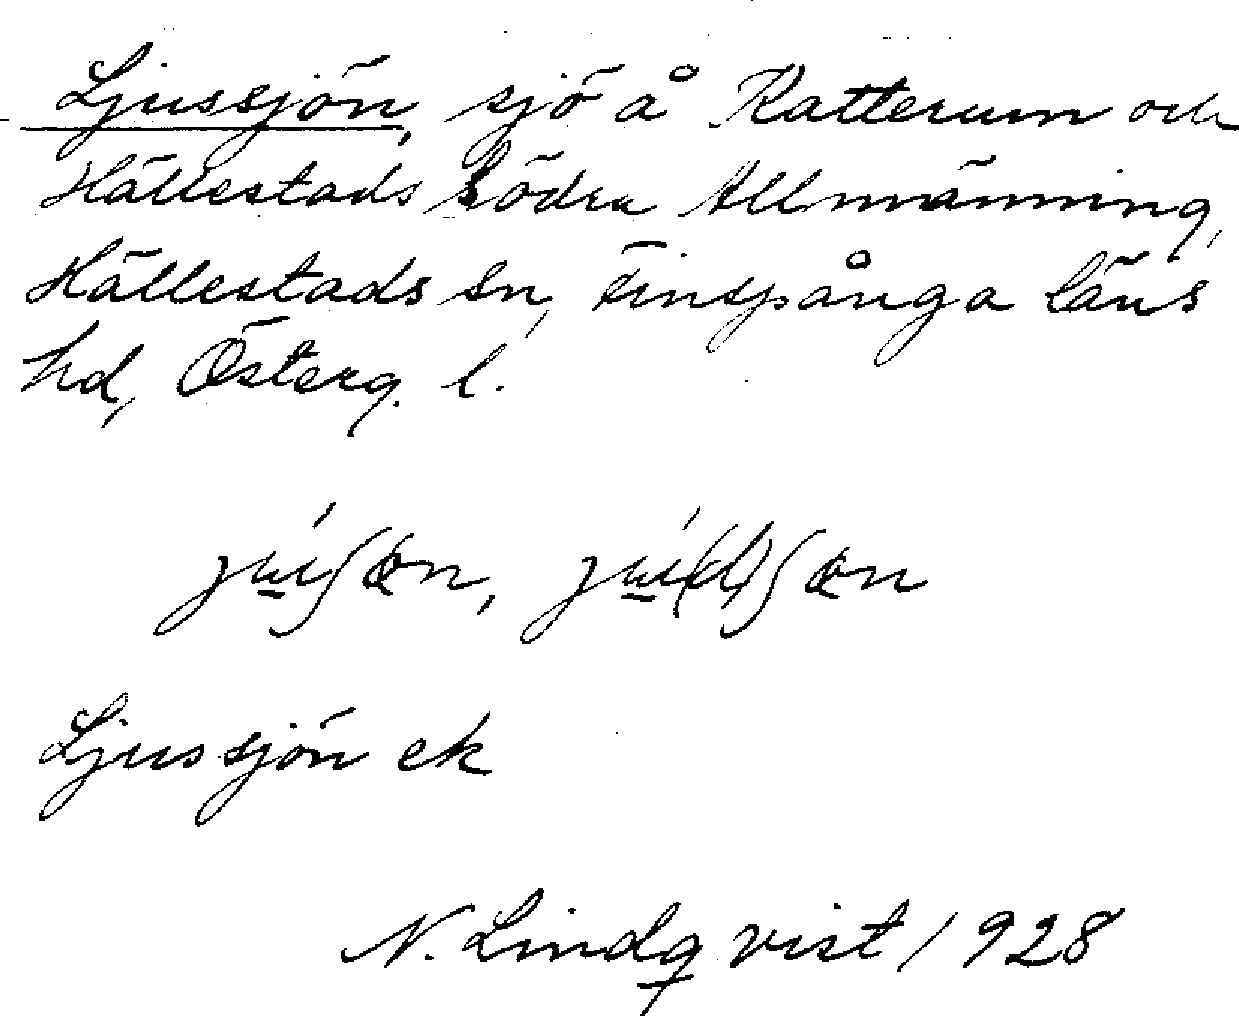 Ljussjön, sjö å Katterum och
Hällestads Södra Allmänning,
Hällestads sn, Finspånga läns
hd, Österg. l.
Ljussjön ek
N. Lindqvist 1928